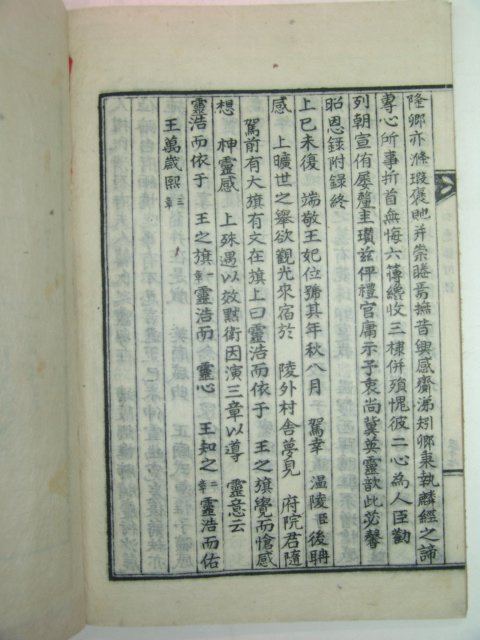 隆卿亦滌瑕褒貤并崇賸焉撫昔興感齋涕矧卿秉執麟經之諦
專心所事折首無悔六簿纔收三棣併殞愧彼二心為人臣勸
列朝宣侑屢釐圭瓚玆伻禮官庸示予衷尚冀英靈歆此苾馨
昭恩錄附錄終
上巳未復 端敬王妃位號其年秋八月 駕幸 溫陵臣後聃
感 上曠世之舉欲觀光來宿於 陵外村舍夢見 府院君隨
駕前有大旗有文在旗上曰靈浩而依于 王之旗覺而愴感
想 神靈感 上殊遇以效默衛因演三章以導 靈意云
靈浩而依于 王之旗 一章 靈浩而 靈心 王知之 二章 靈浩而佑
王萬歲熙 三章